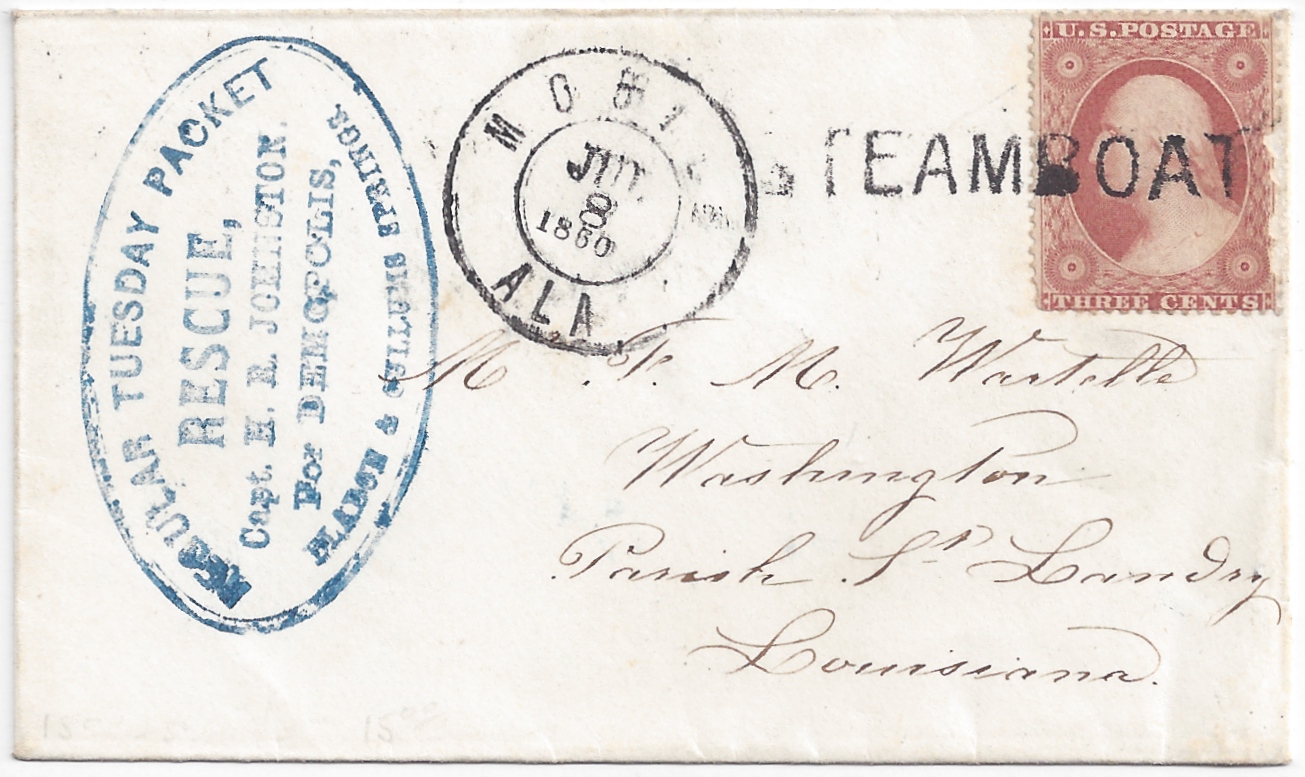 REGULAR TUESDAY PACKET
RESCUE,
Capt. H. R. JOHNSTON.
For DEMOPOLIS,
BLADON & CULLUMS SPRINGS.
MOBILE
JUL
8
1860
ALA
STEAMBOAT
U.S. POSTAGE
THREE CENTS
M. Wartelle
Washington
Parish St Landry
Louisiana.